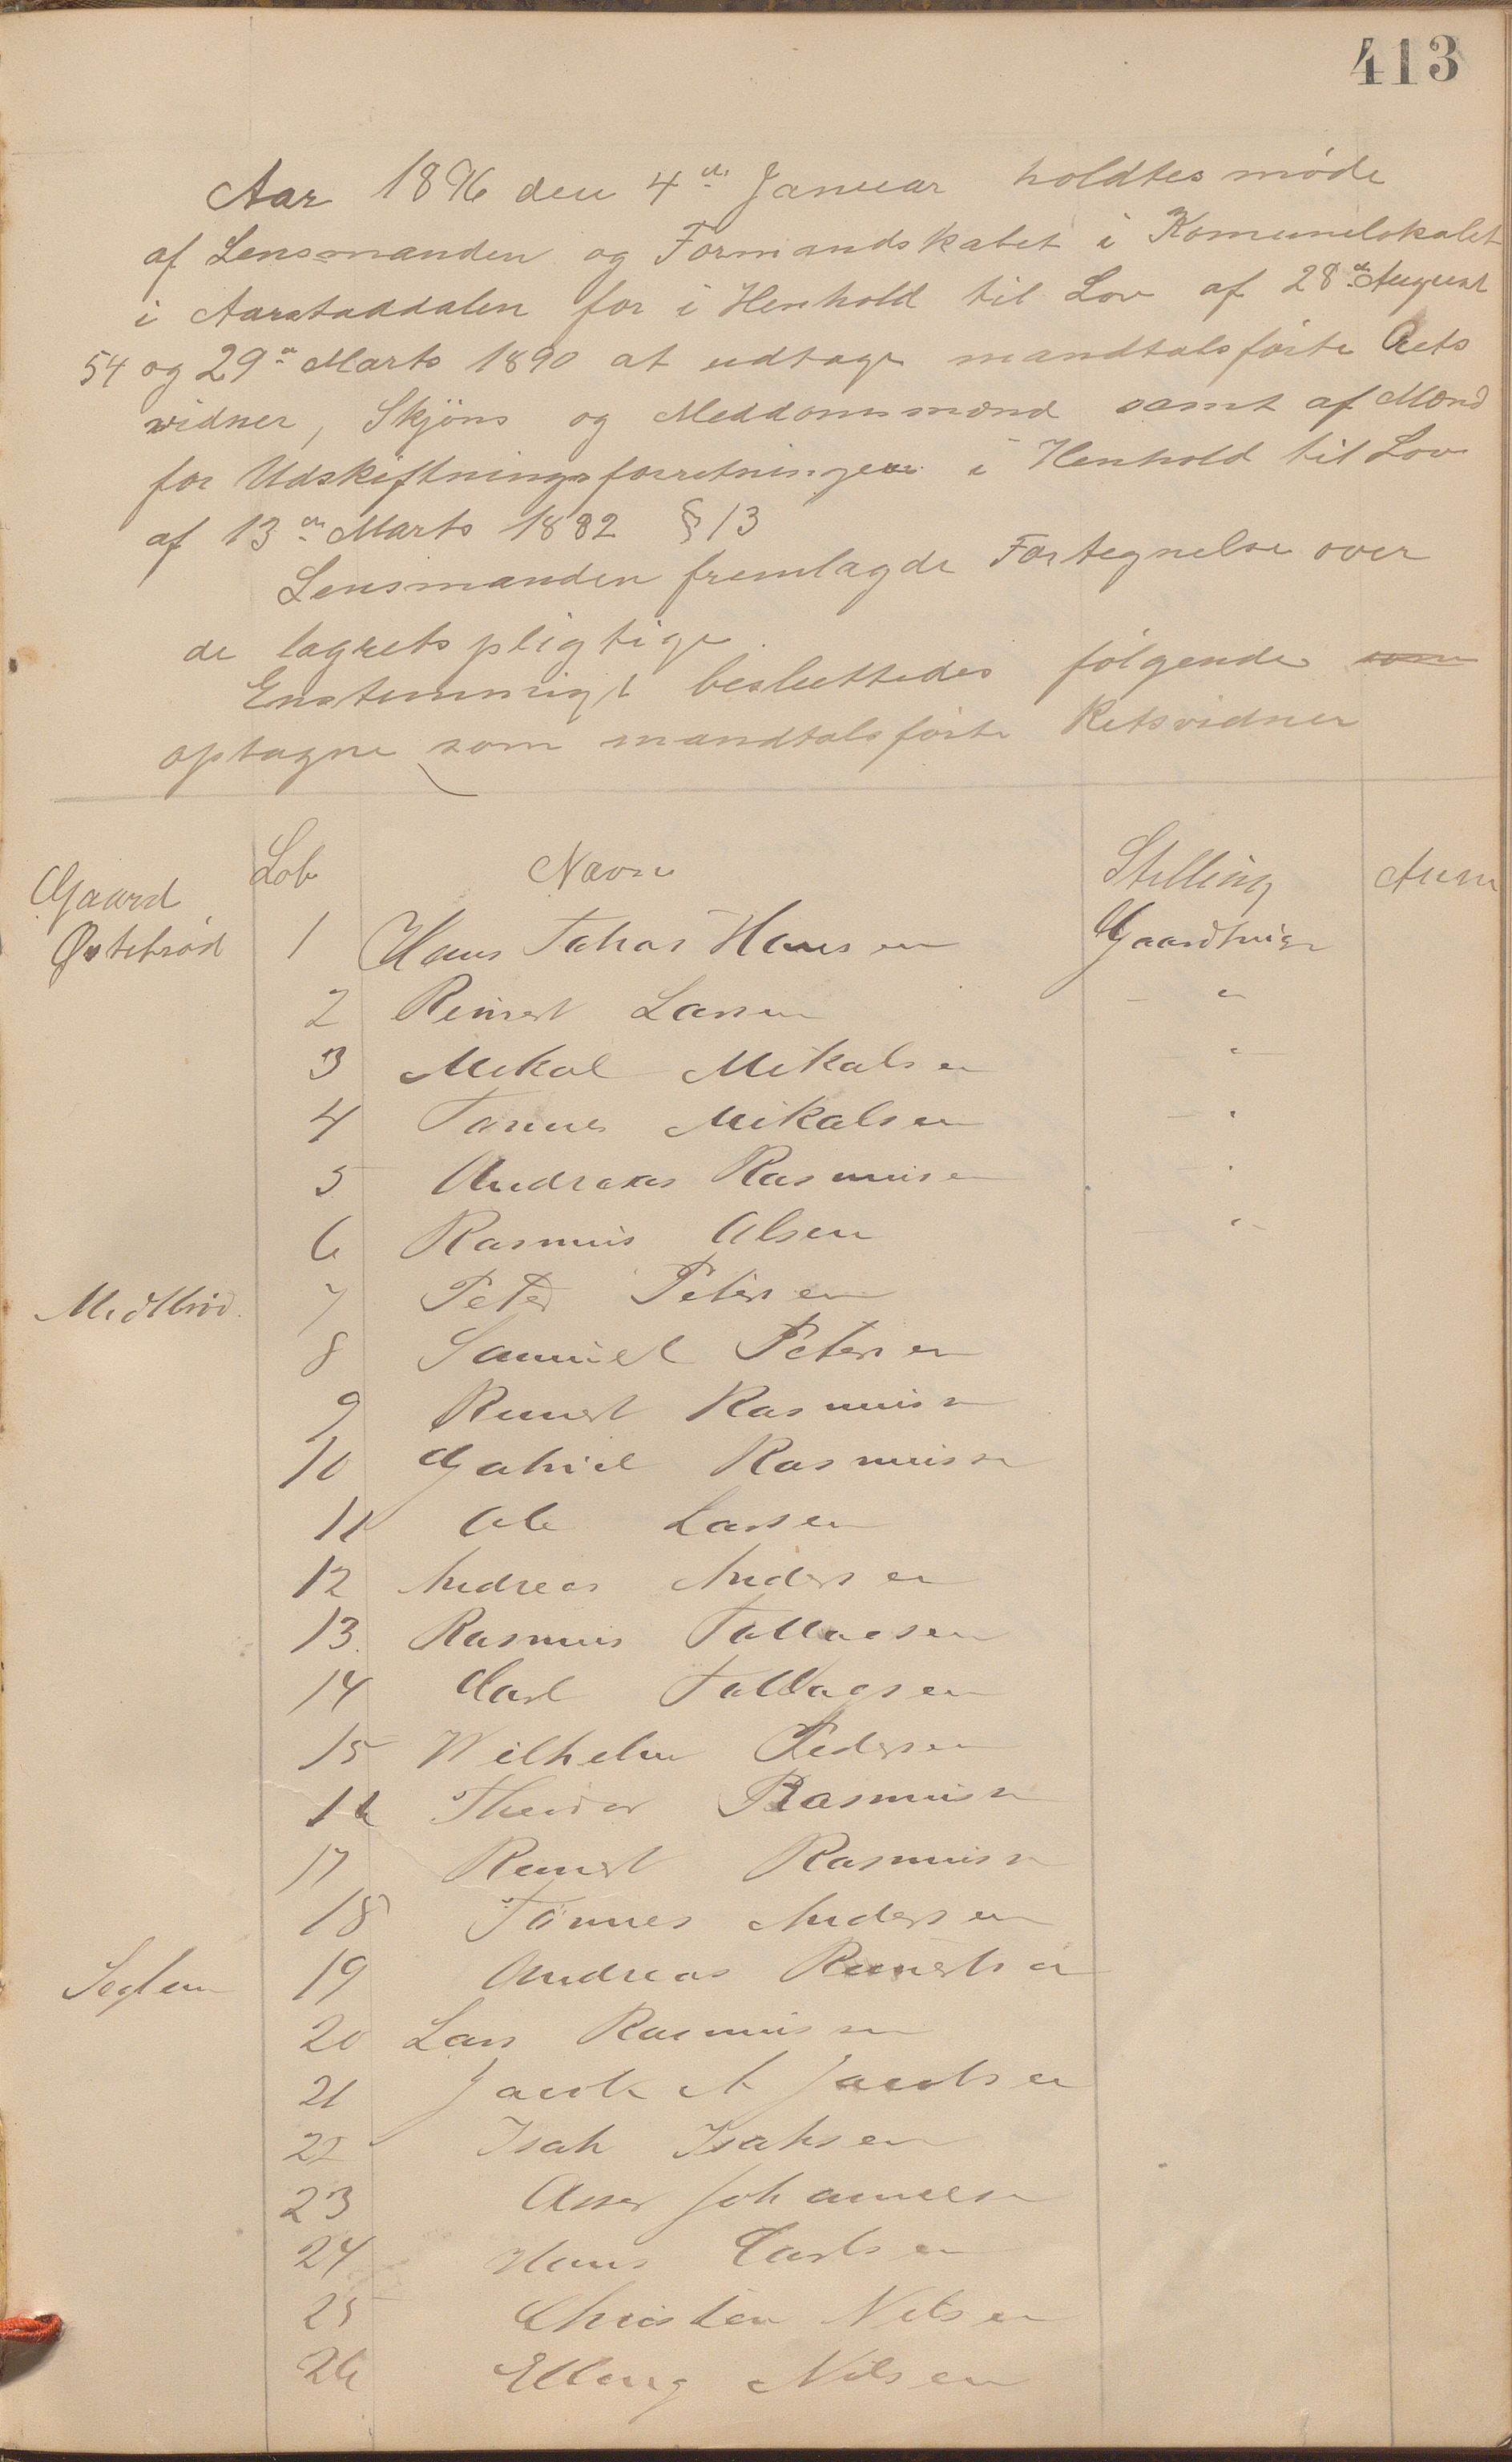 413
Aar 1896 den 4de Januar holdtes møde
af Lensmanden og Formandskabet i Komunelokalet
i Aarstaddalen for i Henhold til Lov af 28de August
54 og 29de Marts 1890 at udtage mandtalsførte Rets
vidner, Skjøns og Meddomsmænd samt af Mænd
for Udskiftningsforretninger i Henhold til Lov
af 13de Marts 1882 § 13
Lensmanden fremlagde Fortegnelse over
de lagretspligtige.
Enstemmigt besluttedes følgende som
optagne som mandtalsførte Retsvidner
Gaard Løb Navn Stilling Anm
Østebrød 1 Hans Tobias Hansen Gaardbruger
2 Reinert Larsen - "
3 Mikal Mikalsen - " -
4 Tønnes Mikalsen - "
5 Andreas Rasmusen "
6 Rasmus Olsen - " -
Midtbrød 7 Peter Petersen
8 Samuel Petersen
9 Reinert Rasmusen
10 Gabriel Rasmusen
11 Ole Larsen
12 Andreas Andersen
13. Rasmus Tollagsen
14 Carl Tollagsen
15 Wilhelm Pedersen
16 Theodor Rasmusen
17 Reinert Rasmusen
18 Tønnes Andersen
Seglem 19 Andreas Reinertsen
20 Lars Rasmussen
21 Jacob A Jacobsen
22 Isak Isaksen
23 Asser Johannesen
24 Hans Carlsen
25 Christen Nilsen
26 Elling Nilsen